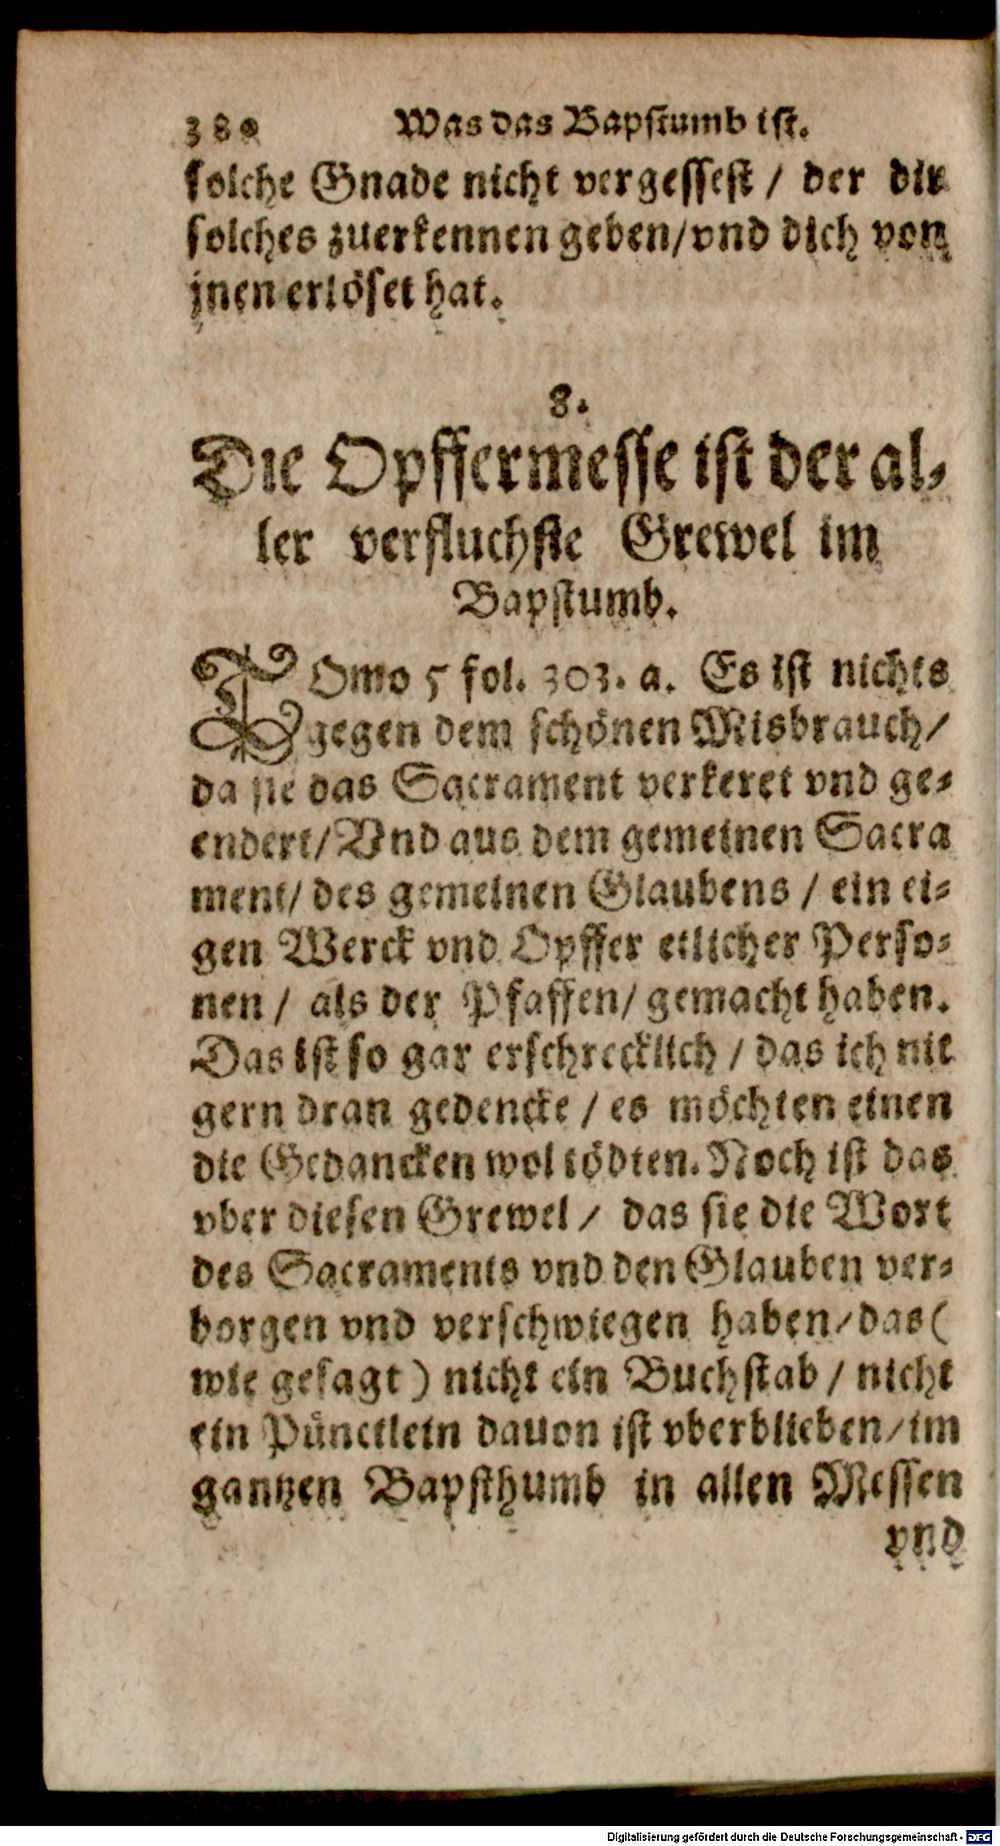 380 Was das Bapstumb ist.
solche Gnade nicht vergessest / der dir
solches zuerkennen geben/vnd dich von
jnen erlöset hat.
8.
Die Opffermesse ist der al-
ler verfluchste Grewel im
Bapstumb.
TOmo 5 fol. 303. a. Es ist nichts
gegen dem schönen Misbrauch/
da sie das Sacrament verkeret vnd ge-
endert/Vnd aus dem gemeinen Sacra
ment/ des gemeinen Glaubens / ein ei-
gen Werck vnd Opffer etlicher Perso-
nen / als der Pfaffen/ gemacht haben.
Das ist so gar erschrecklich / das ich nit
gern dran gedencke / es möchten einen
die Gedancken wol tödten. Noch ist das
vber diesen Grewel / das sie die Wort
des Sacraments vnd den Glauben ver-
borgen vnd verschwiegen haben/das (
wie gesagt ) nicht ein Buchstab / nicht
ein Pünctlein dauon ist vberblieben/im
gantzen Bapsthumb in allen Messen
vnd
Digitalisierung gefördert durch die Deutsche Forschungsgemeinschaft - DFG